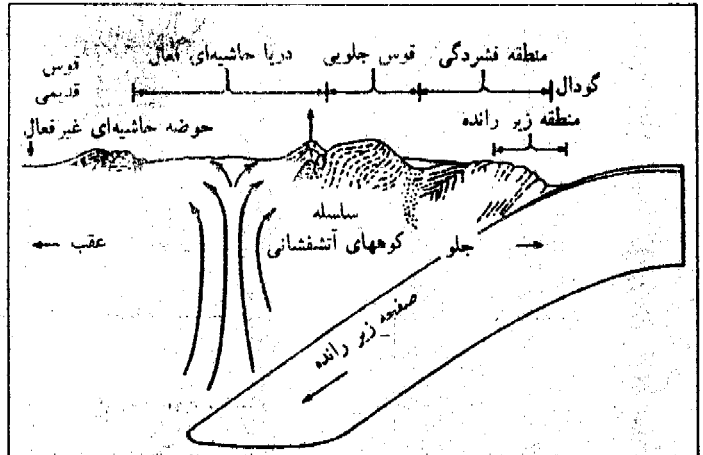 منطقه فشردگی
قوس جلویی
دریا حاشیه‌ای فعال
قوس
قدیمی
گودال
منطقه زیر رانده
حوضه حاشیه‌ای غیرفعال
سلسله
کوههای آتشفشانی
جلو
عقب
صفحه زیر رانده